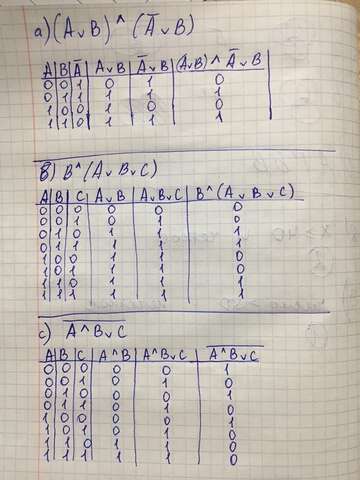 a) (A ∨ B) ^ (A̅ ∨ B)
A B A̅ A ∨ B A̅ ∨ B (A∨B) ^ A̅ ∨ B
0 0 1 0 1 0
0 1 1 1 1 1
1 0 0 1 0 0
1 1 0 1 1 1
б) B ^ (A ∨ B ∨ C)
A B C A ∨ B A ∨ B ∨ C B ^ (A ∨ B ∨ C)
0 0 0 0 0 0
0 0 1 0 1 0
0 1 0 1 1 1
0 1 1 1 1 1
1 0 0 1 1 0
1 0 1 1 1 0
1 1 0 1 1 1
1 1 1 1 1 1
c) A̅ ̅^̅ ̅B̅ ̅∨̅ ̅C̅
A B C A ^ B A ^ B ∨ C A̅ ̅^̅ ̅B̅ ̅∨̅ ̅C̅
0 0 0 0 0 1
0 0 1 0 1 0
0 1 0 0 0 1
0 1 1 0 1 0
1 0 0 0 0 1
1 0 1 0 1 0
1 1 0 1 1 0
1 1 1 1 1 0